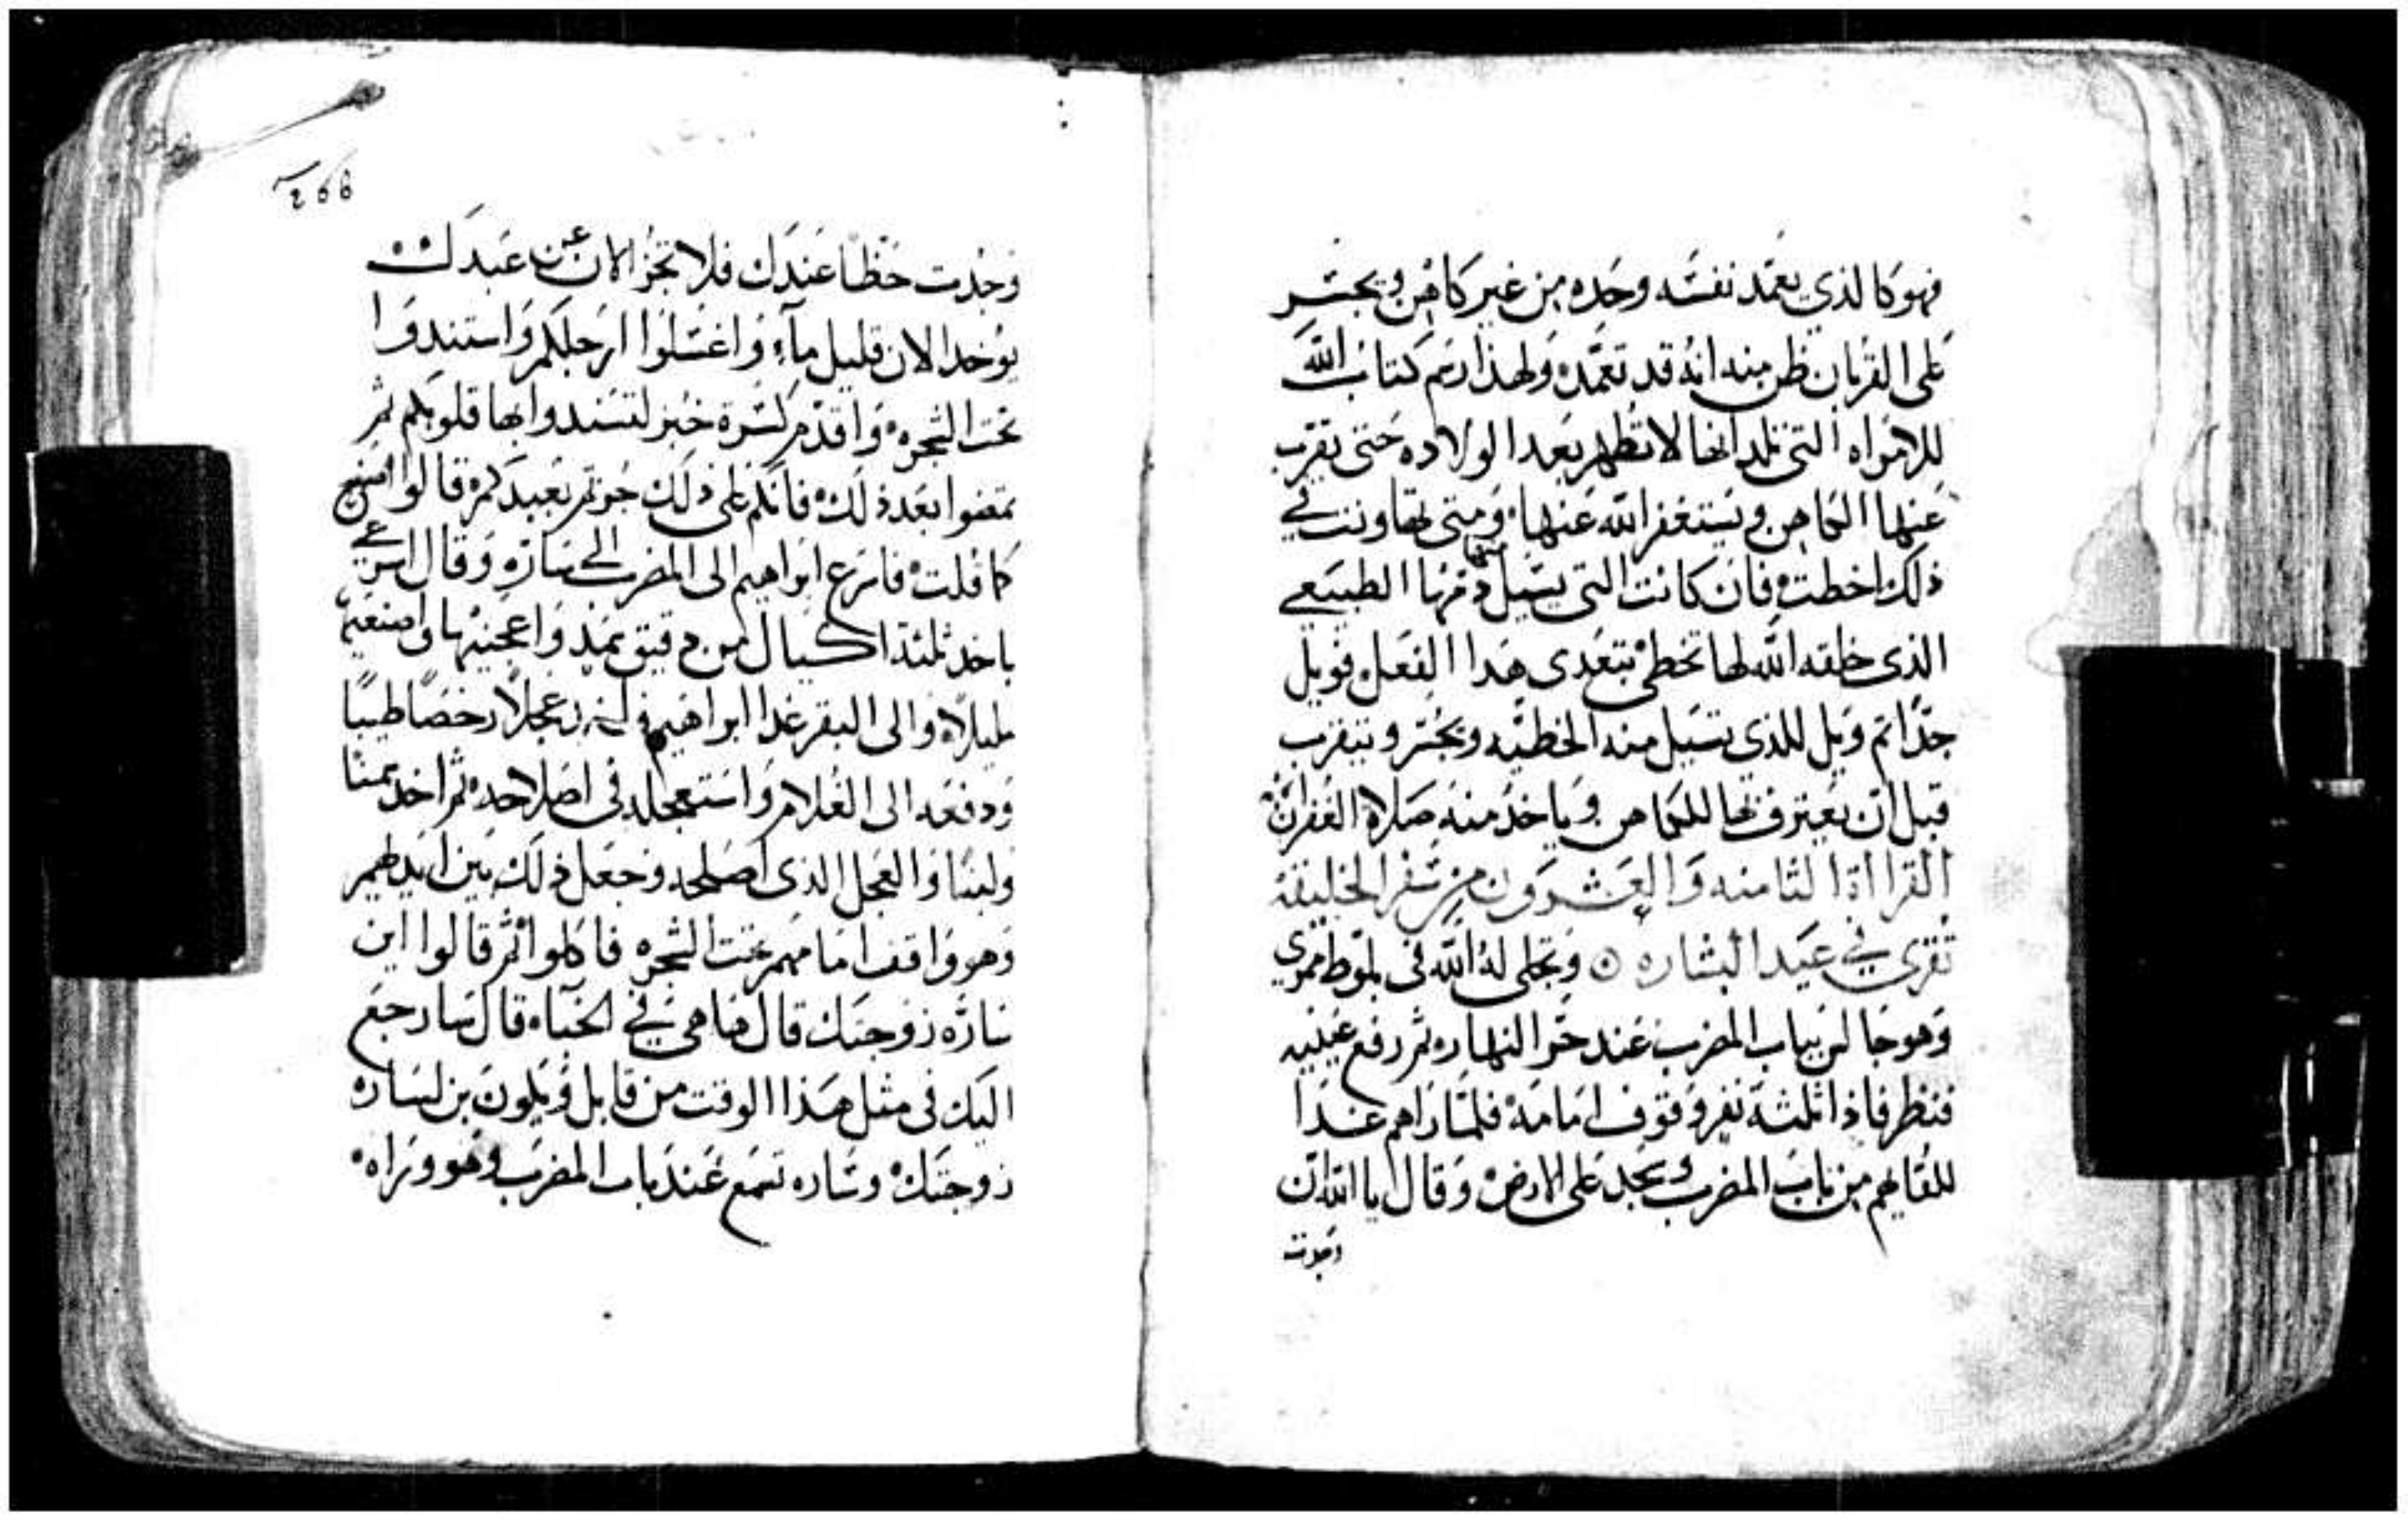 فهو كالذي يعمد نفسه وحده من غير كاهن ويجسر
على القربان ظن منه انه قد تعمد ولهذا رسم كتاب الله
للامراه التى تلد انها لا تطهر بعد الولاده حتى يقرب
عنها الكاهن ويستغفر الله عنها ومتى تهاونت في
ذلك اخطت فان كانت التى يسيل منها دمها الطبيعي
الذى خلقه الله لها تخطى بتعدى هدا الفعل فويل
جدًا ثم ويل للذي تسيل منه الخطيه ويجسر ويتقرب
قبل ان يعترف بها للكاهن وياخد منه صلاة الغفران
القرااة الثامنه والعشرون من سفر الخليقة
تقرى في عيد البشاره وتجلى له الله فى بلوط ممرى
وهو جالس بباب المضرب عند حر النهاره ثم رفع عينيه
فنظر فاذا ثلثة نفر وقوف امامه فلما راهم غدا
للقايهم من باب المضرب وسجد على الارض وقال ياالله ان
وجدت
268
وجدت حظا عندك فلا تجز الان عن عبدك
يوخد الان قليل ماء واغسلوا ارجلكم واستندوا
تحت الشجره واقدم كسرة خبز لتسندوا بها قلوبكم ثم
تمضوا بعد ذلك فانكم على ذلك جوتم بعبدكم قالوا اصنع
كما قلت فاسرع ابراهيم الى المضرب الى ساره وقال اسرعي
باخد ثلثة اكيال من دقيق سميد واعجنيها واصنعيه
مليلاه والى البقر غدا ابراهيم عجلا رخصًا طيبًا
ودفعه الى الغلام واستعجله فى اصلاحه ثم اخد سمنا
ولبنا والعجل الذى اصلحه وجعل ذلك بين ايديهم
وهو واقف امامهم تحت الشجره فاكلوا ثم قالوا اين
ساره زوجتك قال ها هي في الخباء قال سارجع
اليك فى مثل هذا الوقت من قابل ويكون بن لساره
زوجتك وساره تسمع عند باب المضرب وهو وراه